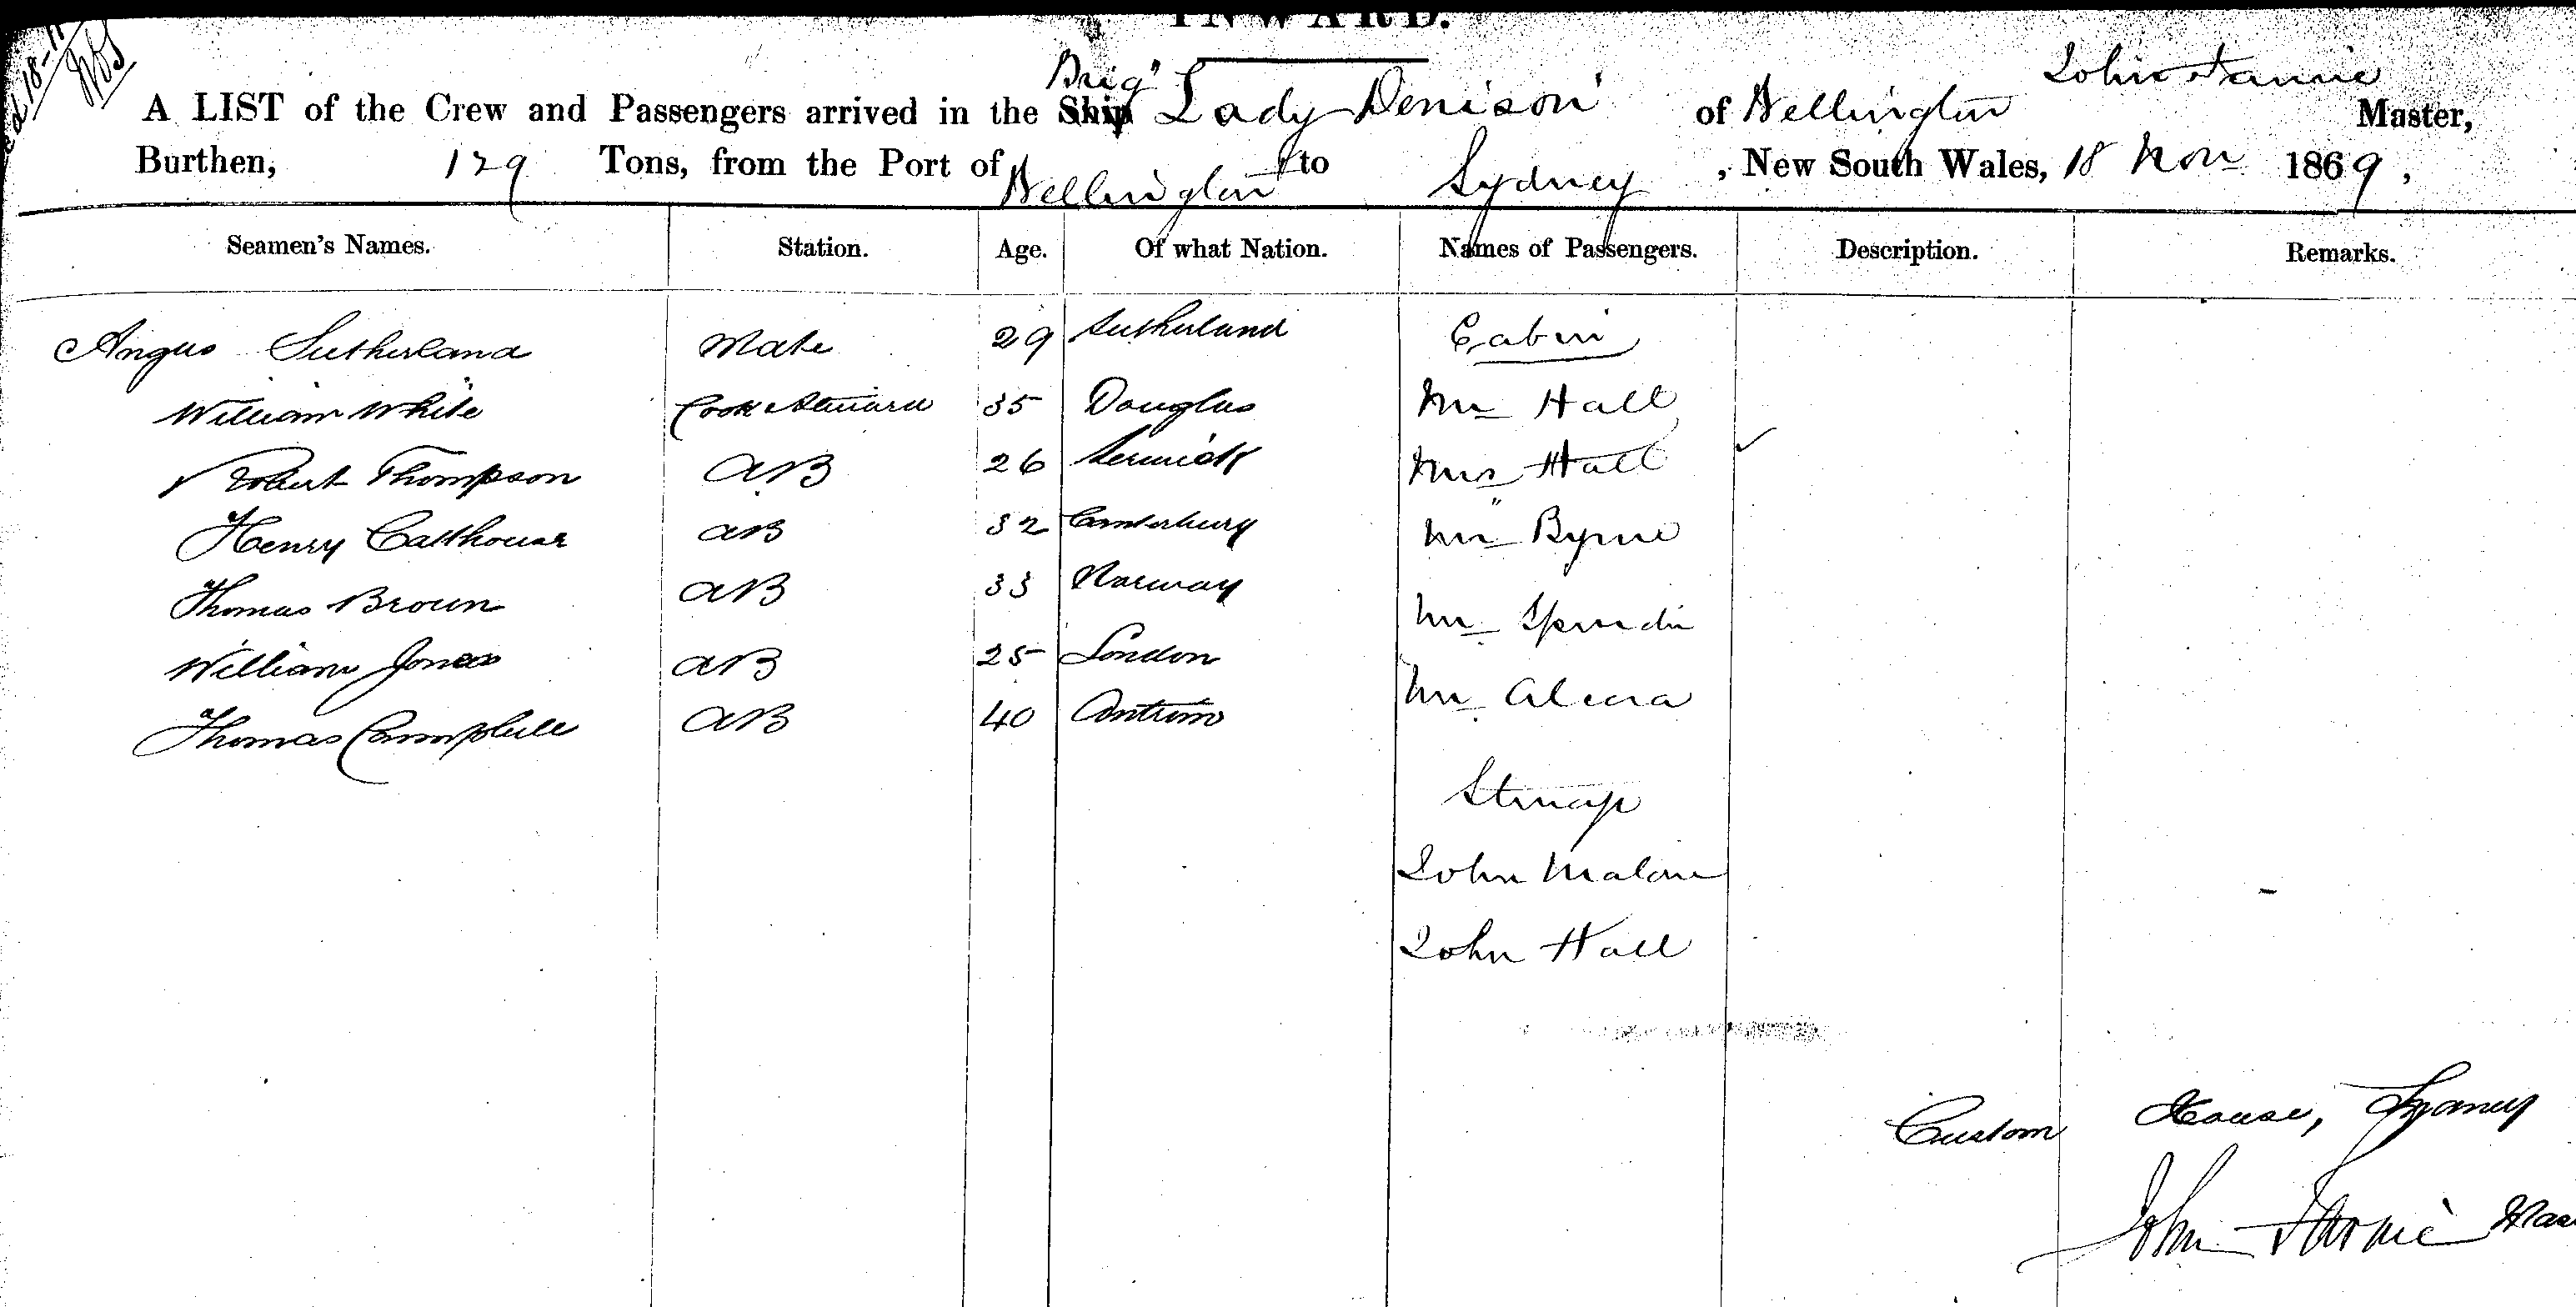 INWARD.
A LIST of the Crew and Passengers arrived in the Ship Brig "Lady Denison" of Wellington John Master,
Burthen, 129 Tons, from the Port of Wellington to Sydney, New South Wales, 18 Nov 1869,
Seamen's Names. Station. Age. Of what Nation. Names of Passengers. Description. Remarks.
Angus Sutherland Mate 29 Sutherland Cabin
William White Cook & Steward 35 Douglas Mr Hall
Robert Thompson AB 26 Lerwick Mrs Hall
Henry AB 32 Canterbury Mr Byrne
Thomas Brown AB 33 Norway Mr
William Jones AB 25 London Mr
Thomas Campbell AB 40 Antrim
Steerage
John Malone
John Hall
Custom House, Sydney
John